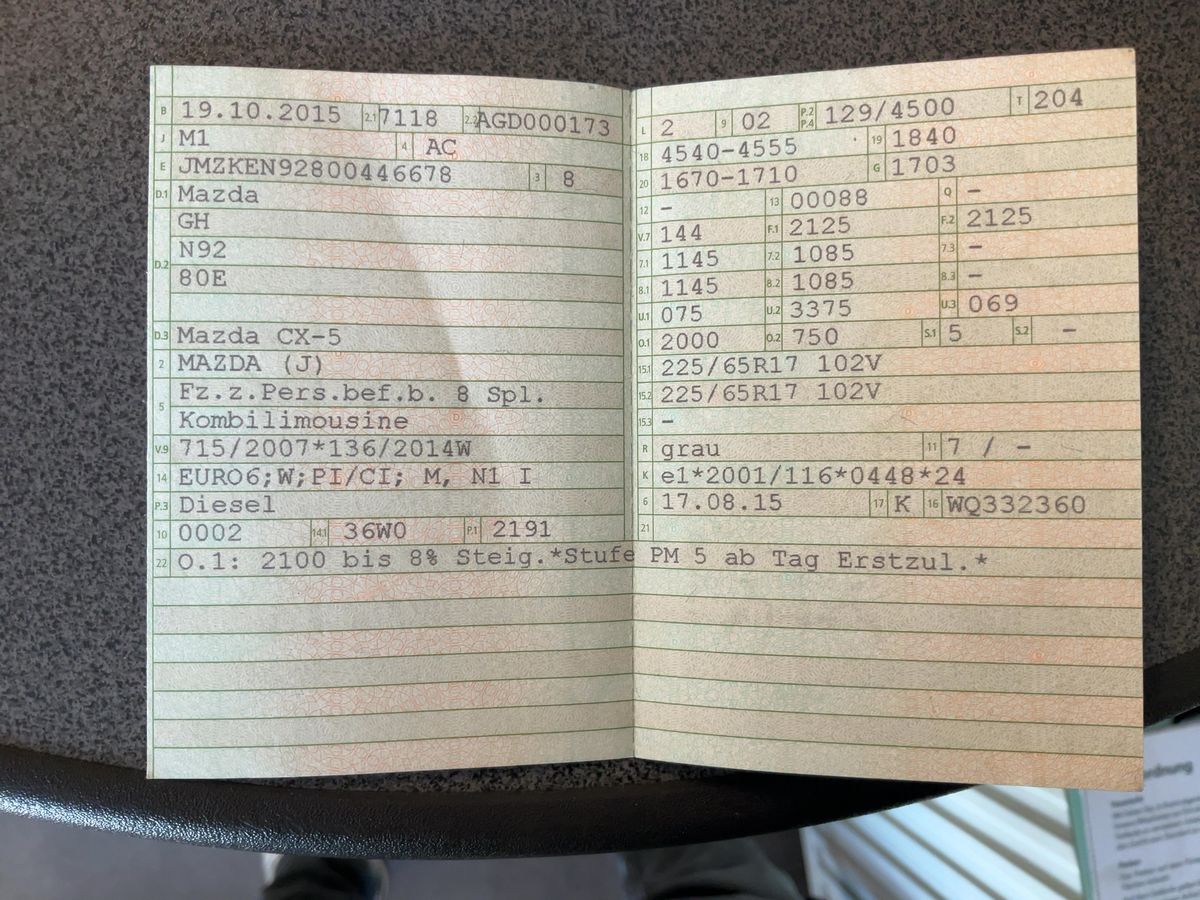 B 19.10.2015 2.1 7118 2.2 AGD000173
J M1 4 AC
E JMZKEN92800446678 3 8
D.1 Mazda
D.2 GH
N92
80E
D.3 Mazda CX-5
2 MAZDA (J)
5 Fz.z.Pers.bef.b. 8 Spl.
Kombilimousine
V.9 715/2007*136/2014W
14 EURO6;W;PI/CI; M, N1 I
P.3 Diesel
10 0002 14.1 36W0 P.1 2191
L 2 9 02 P.2 P.4 129/4500 T 204
18 4540-4555 19 1840
20 1670-1710 G 1703
12 - 13 00088 Q -
V.7 144 F.1 2125 F.2 2125
7.1 1145 7.2 1085 7.3 -
8.1 1145 8.2 1085 8.3 -
U.1 075 U.2 3375 U.3 069
O.1 2000 O.2 750 S.1 5 S.2 -
15.1 225/65R17 102V
15.2 225/65R17 102V
15.3 -
R grau 11 7 / -
K e1*2001/116*0448*24
6 17.08.15 17 K 16 WQ332360
21
22 O.1: 2100 bis 8% Steig.*Stufe PM 5 ab Tag Erstzul.*